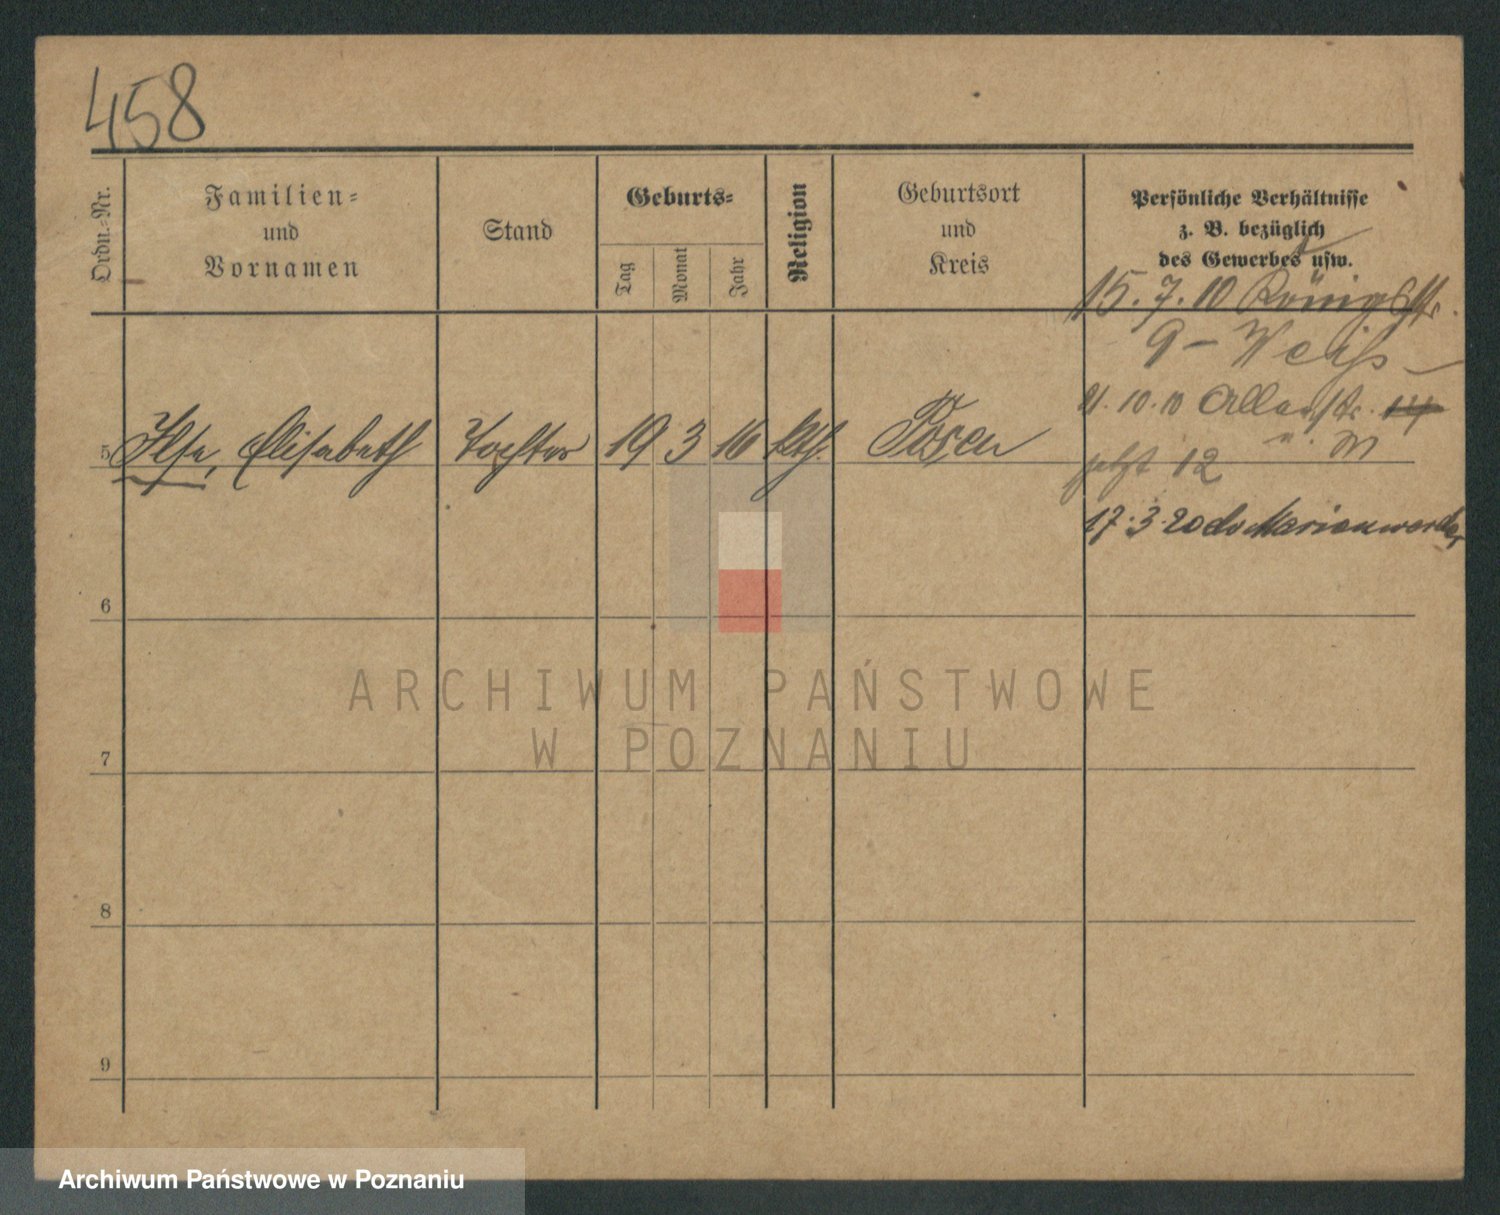 458
Ordn.-Nr.
Familien-
und
Vornamen
Stand
Geburts-
Tag
Monat
Jahr
Religion
Geburtsort
und
Kreis
Persönliche Verhältnisse
z. B. bezüglich
des Gewerbes usw.
15.7.10 Königstr.
9 - Weiss
21.10.10 14
5 Ilse, Elisabeth Tochter 19 3 16 kth. Posen
jetzt 12
17.3.20 Marienwerder
6
7
8
9
ARCHIWUM PAŃSTWOWE
W POZNANIU
Archiwum Państwowe w Poznaniu